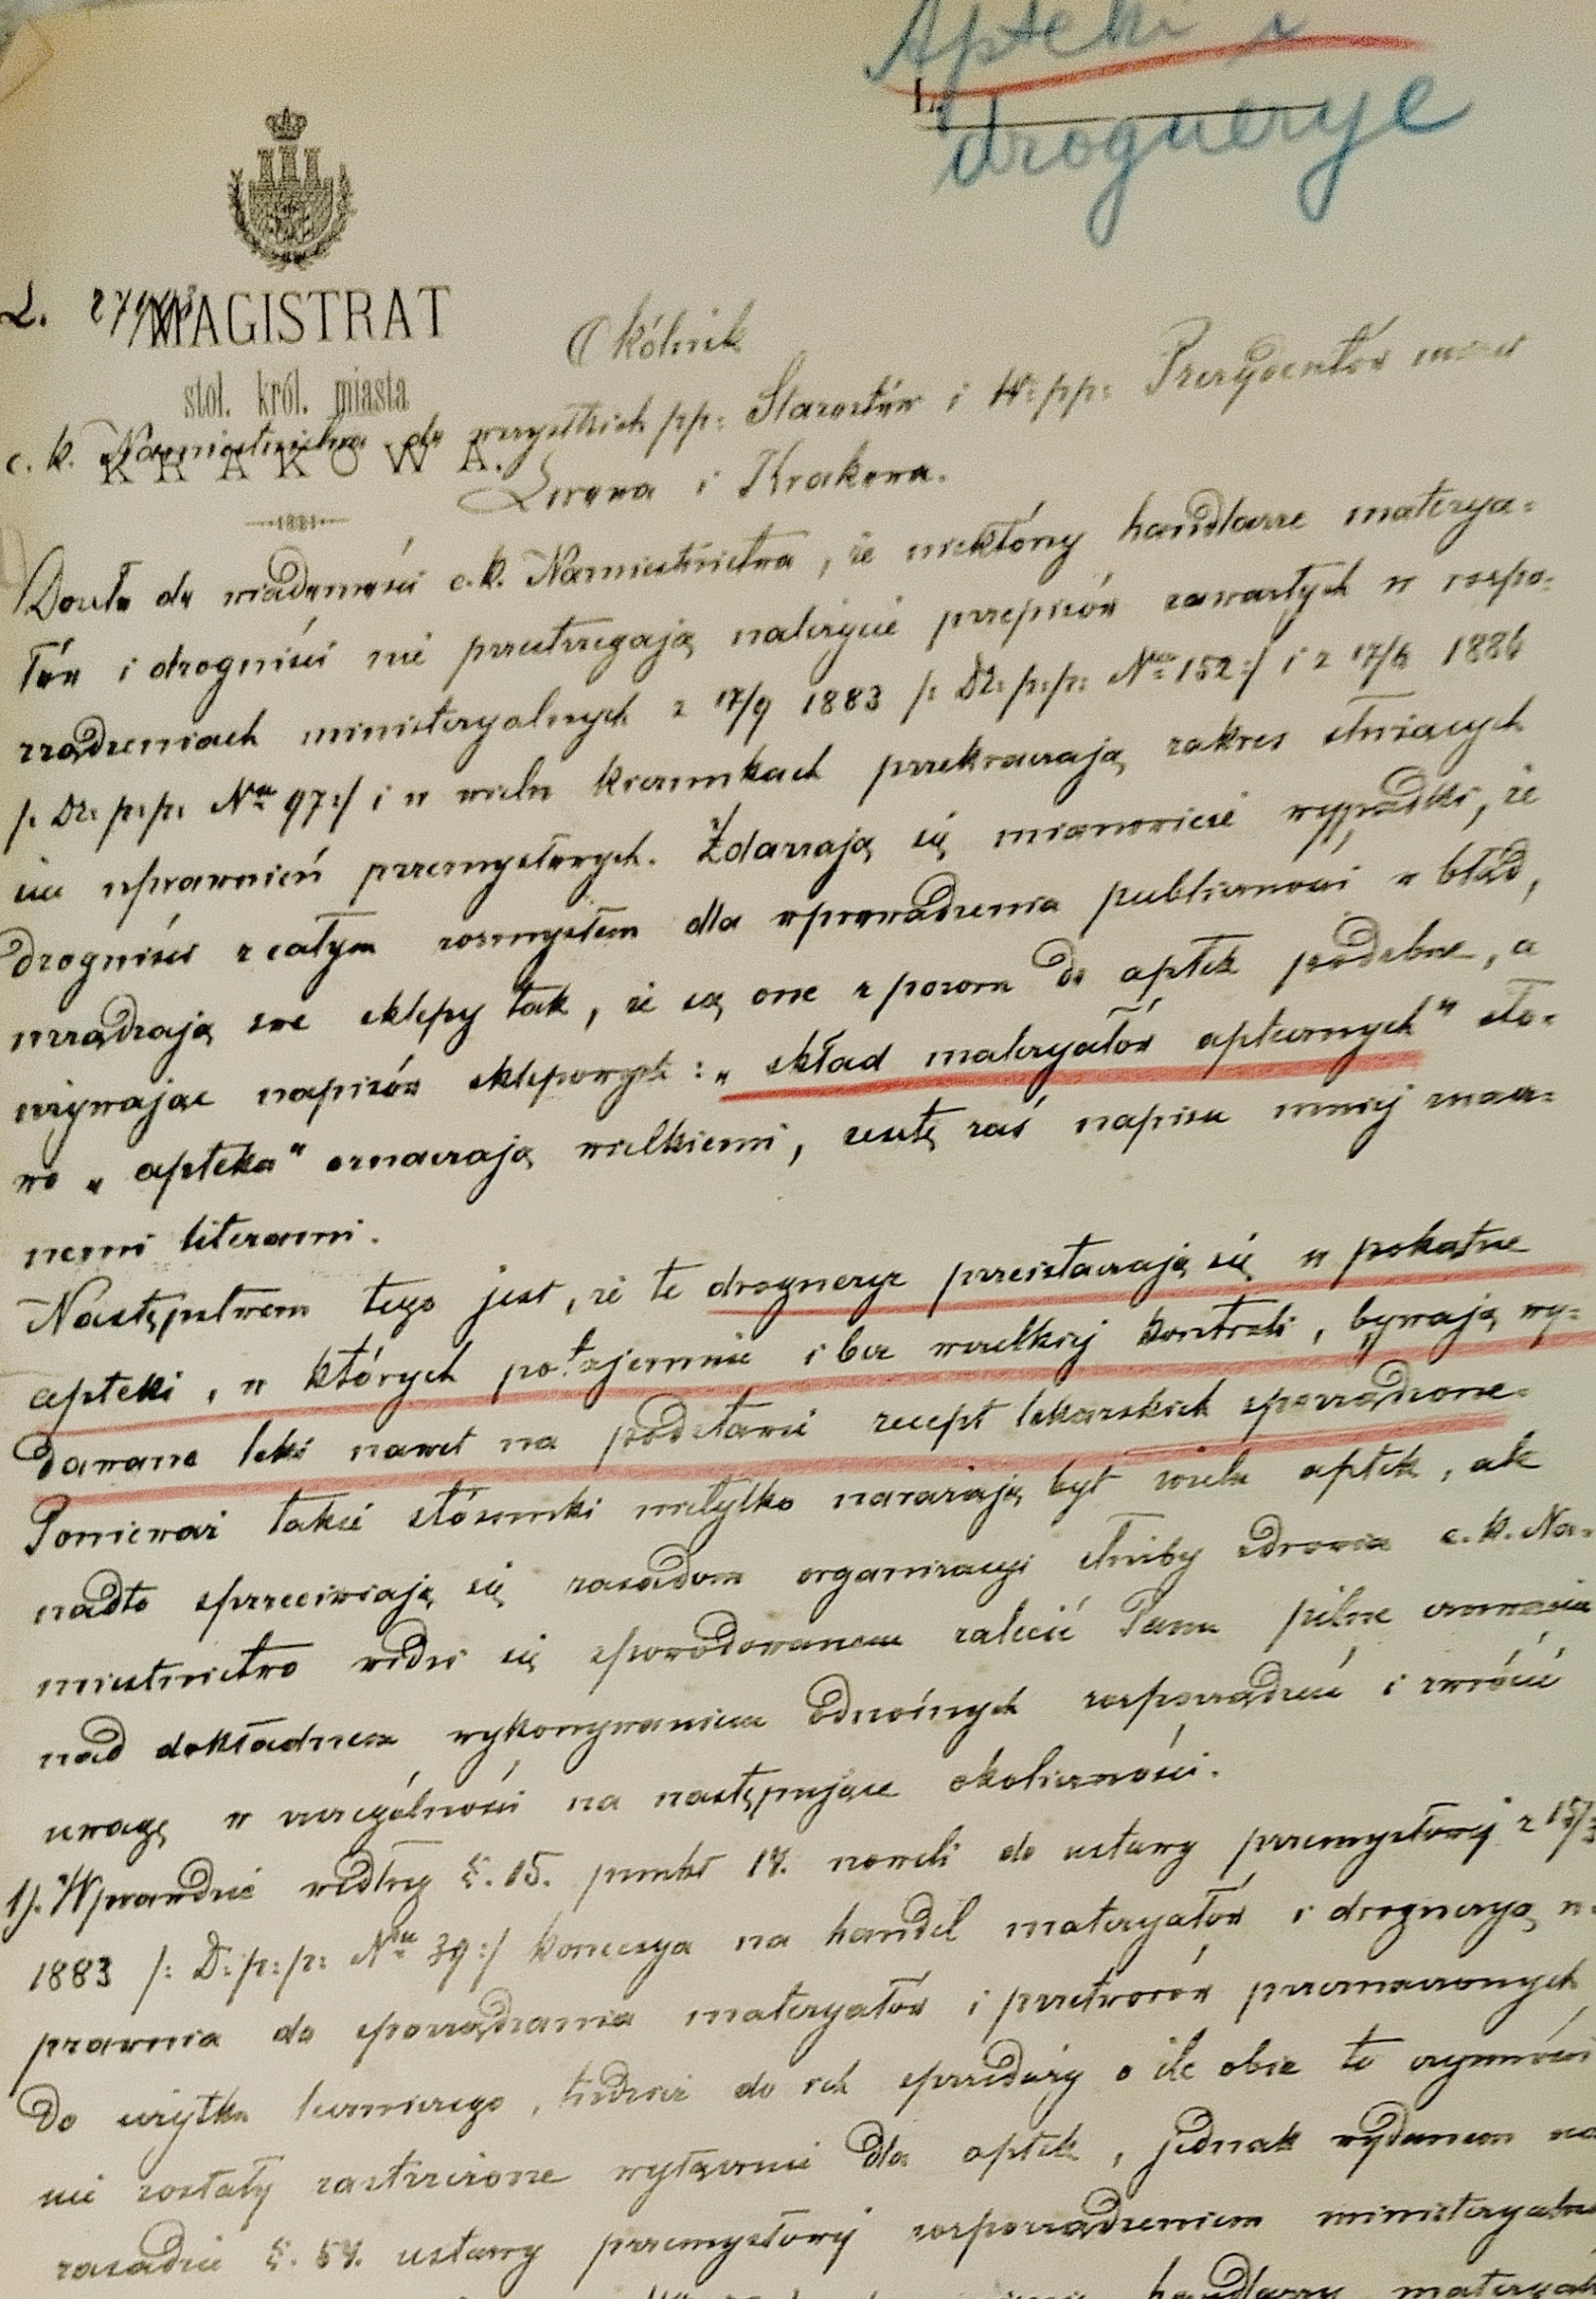 Apteki i
L.
droguerye
L.
MAGISTRAT
stol. król. miasta
KRAKOWA.
1881
Okólnik
c. k. Namiestnictwa do wszystkich pp: Starostów i W: pp: Prezydentów miast
Lwowa i Krakowa.
Doszło do wiadomości c. k. Namiestnictwa, że niektórzy handlarze materya-
łów i droguiści nie przestrzegają należycie przepisów zawartych w rozpo-
rządzeniach ministeryalnych z 17/9 1883 /: Dz: p: p: Nro 152 :/ i z 17/6 1886
/: Dz: p: p: Nro 97 :/ i w wielu kierunkach przekraczają zakres służących
im uprawnień przemysłowych. Zdarzają się mianowicie wypadki, że
droguiści z całym rozmysłem dla wprowadzenia publiczności w błąd,
urządzają swe sklepy tak, że są one z pozoru do aptek podobne, a
używając napisów sklepowych: „skład materyałów aptecznych" sło-
wo „apteka" oznaczają wielkiemi, resztę zaś napisu mniej znacz-
nemi literami.
Następstwem tego jest, że te droguerye przeistaczają się w pokątne
apteki, w których potajemnie i bez wszelkiej kontroli, bywają wy-
dawane leki nawet na podstawie recept lekarskich sporządzone.
Ponieważ takie stósunki nietylko narażają byt wielu aptek, ale
nadto sprzeciwiają się zasadom organizacyi służby zdrowia c. k. Na-
miestnictwo widzi się spowodowanem zalecić Panu pilne czuwanie
nad dokładnem wykonywaniem odnośnych rozporządzeń i zwrócić
uwagę w szczególności na następujące okoliczności.
1). Wprawdzie według §. 15. punkt 14. noweli do ustawy przemysłowej z 15/3
1883 /: D: p: p: Nro 39 :/ koncesya na handel materyałów i drogueryą u-
prawnia do sporządzania materyałów i przetworów przeznaczonych
do użytku leczniczego, tudzież do ich sprzedaży o ile obie te czynności
nie zostały zastrzeżone wyłącznie dla aptek, jednak wydanem na
zasadzie §. 54. ustawy przemysłowej rozporządzeniem ministeryalnem
handlarzy materyałów